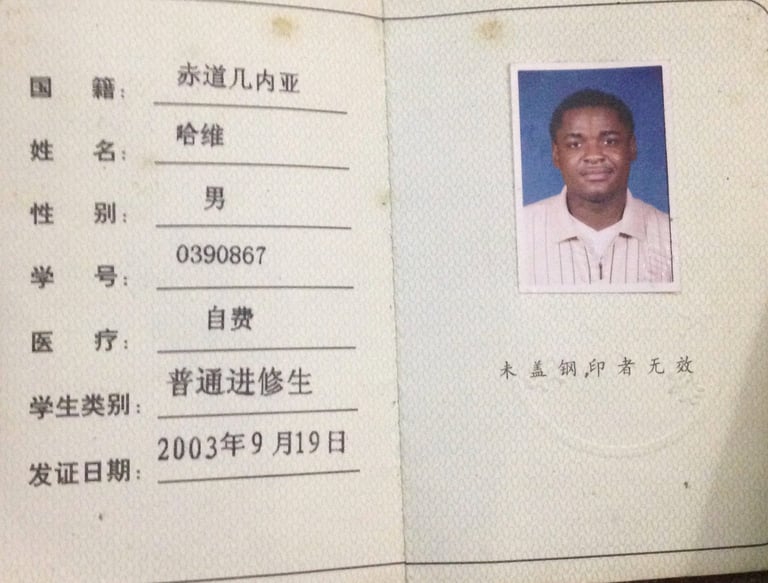 国 籍： 赤道几内亚
姓 名： 哈维
性 别： 男
学 号： 0390867
医 疗： 自费
学生类别： 普通进修生
发证日期： 2003年9月19日
未盖钢印者无效